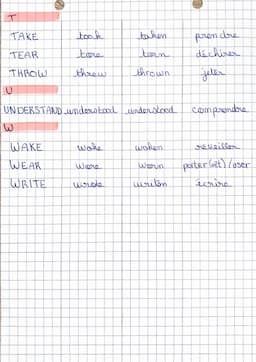 T
TAKE took taken prendre
TEAR tore torn déchirer
THROW threw thrown jeter
U
UNDERSTAND understood understood comprendre
W
WAKE woke woken réveiller
WEAR wore worn porter (vêt) / user
WRITE wrote written écrire